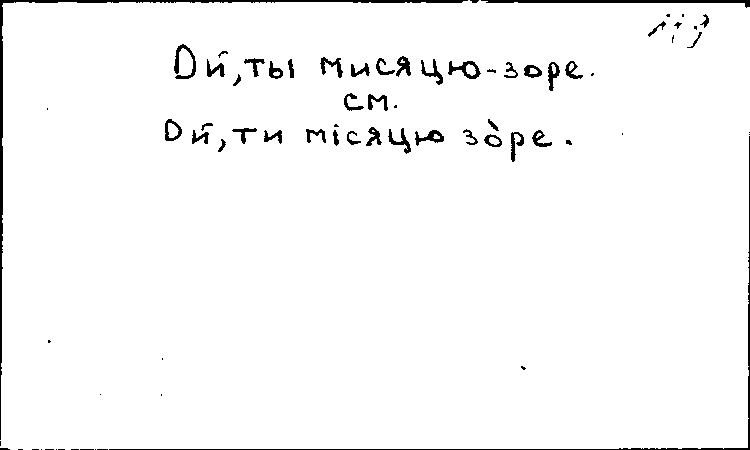 Ой, ты мисяцю-зоре.
см.
Ой, ти місяцю зо̀ре.